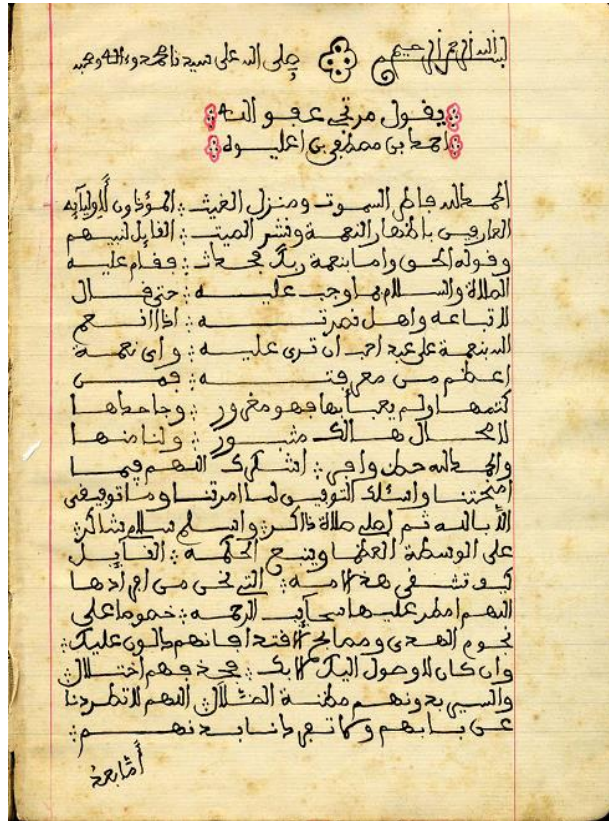 بسم الله الرحمن الرحيم صلى الله على سيدنا محمد وءاله وصحبه
يقول مرتجي عفو الله
احمد بن مصطفى بن اعليوه
الحمد لله فاطر السموت ومنزل الغيث ؛ المؤذن لأوليآيه
العارفين باظهار النعمة ونشر الميت ؛ القايل لنبيهم
وقوله الحق واما بنعمة ربك فحدث ؛ فقام عليه
الصلاة والسلام بما وجب عليه ؛ حتى قال
لاتباعه واهل نصرته ؛ اذا انعم
الله بنعمة على عبد احب ان ترى عليه ؛ واى نعمة
اعظم من معرفته ؛ فمن
كتمها ولم يعبأ بها فهو مغرور ؛ وجاحدها
لا محال هالك مثبور ؛ ولنا منها
والحمد لله حظ وافر ؛ اشكرك اللهم فيما
امنحتنا واسئلك التوفيق لما امرتنا وما توفيقى
الا بالله ثم اصلى صلاة ذاكر واسلم سلام شاكر
على الوسطة العظما وينبع الحكمه ؛ القآيل
كيف تشقى هذه الامه ؛ التى نحن من افرادها
اللهم امطر عليها سحآيب الرحمه ؛ خصوصا على
نجوم الهدى ومصابح الاقتدا فانهم دالون عليك ؛
وان كان لا وصول اليك الا بك ؛ فحذفهم اختلال
والسير بدونهم مظنة الضلال اللهم لا تطردنا
عن بابهم ولا تجردنا بدنهم ؛
أمّا بعد